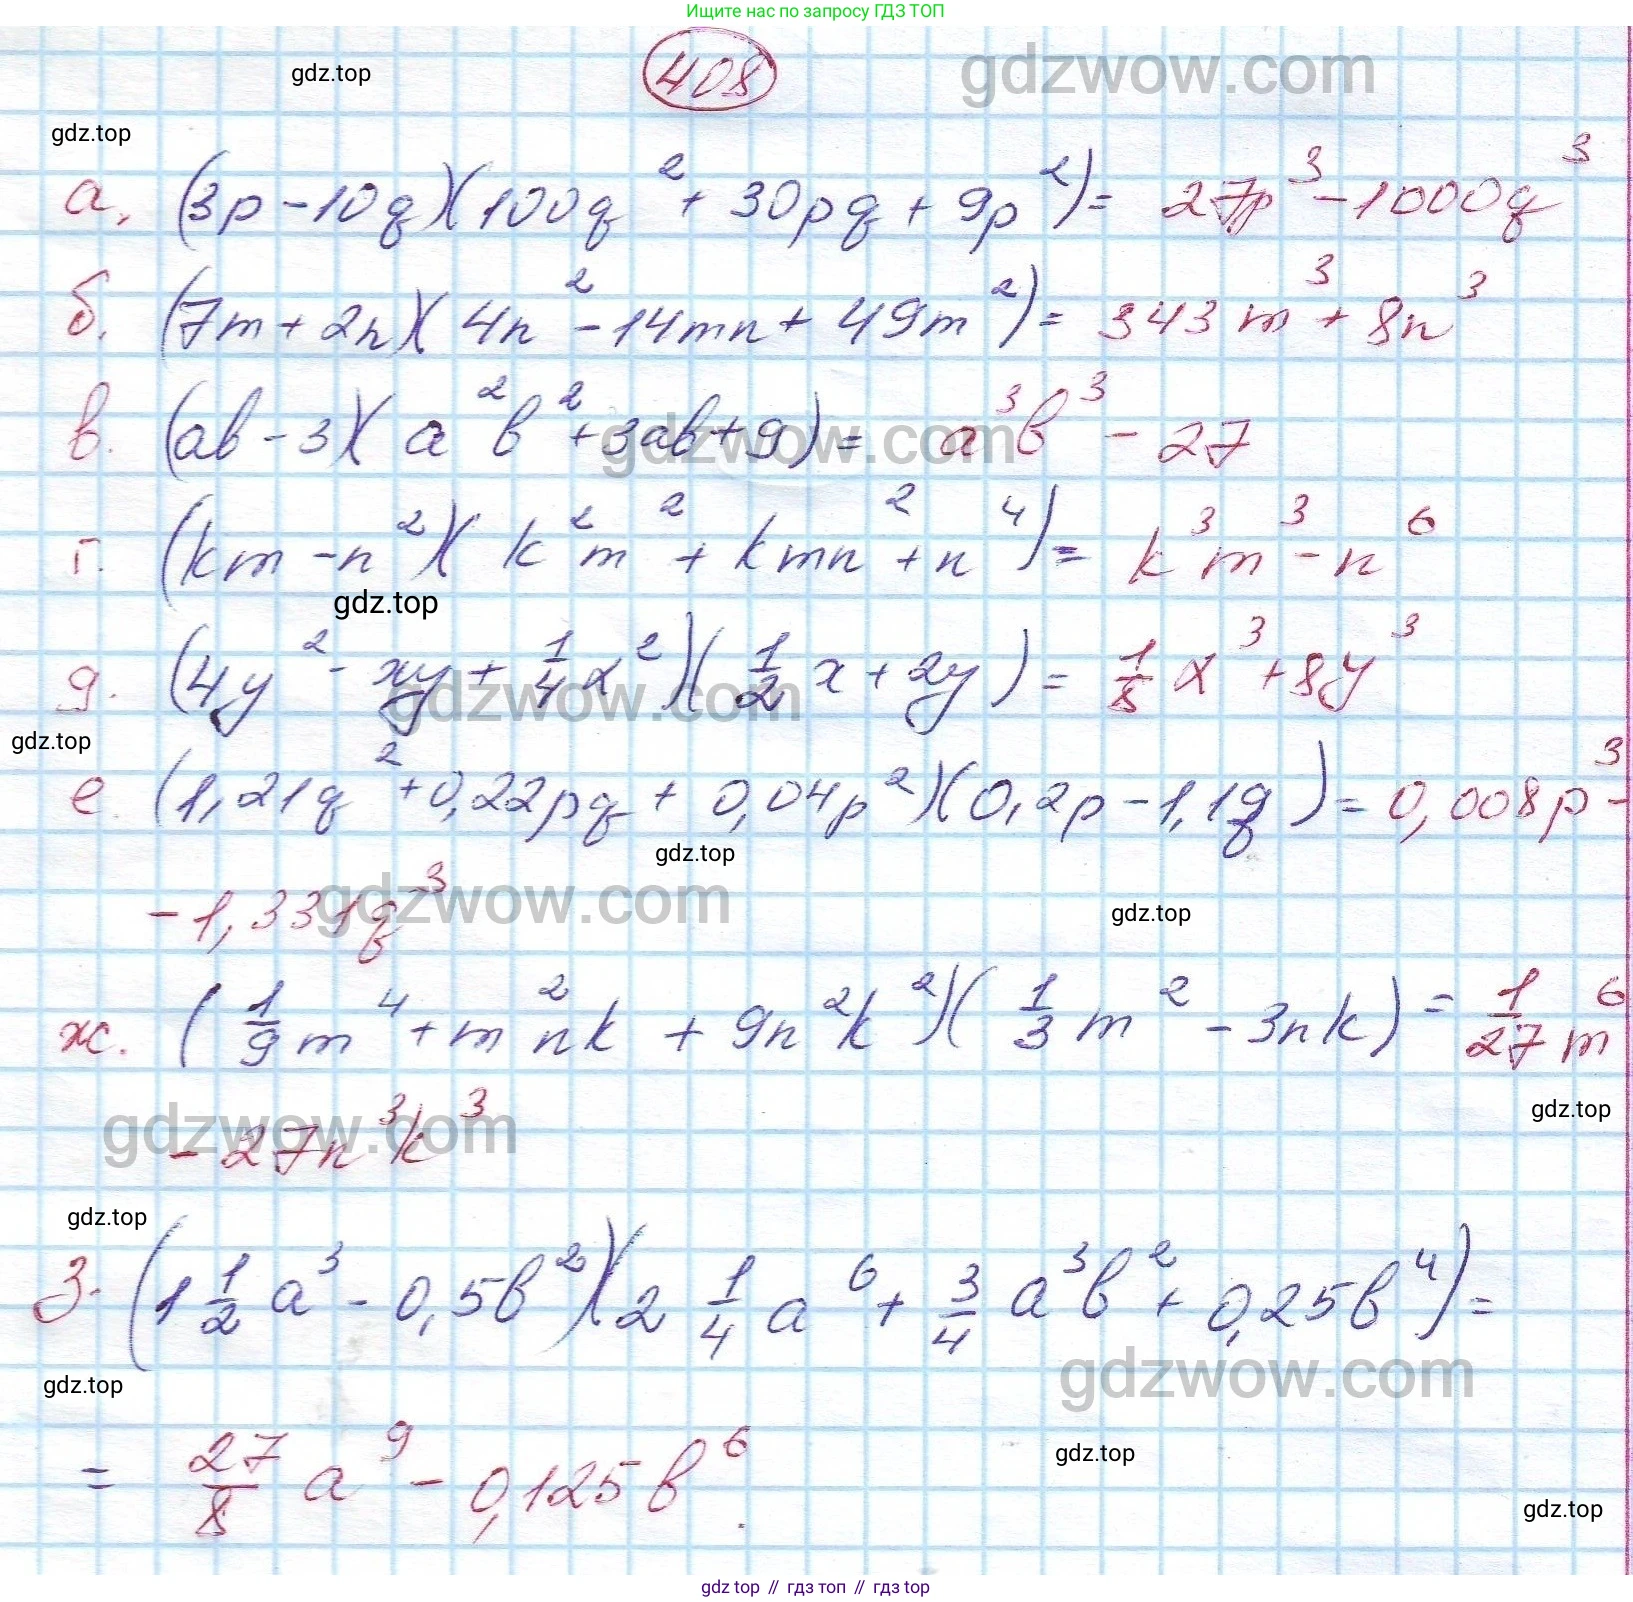 Ищите нас по запросу ГДЗ ТОП
408
gdz.top
gdzwow.com
gdz.top
а. (3p - 10q)(100q² + 30pq + 9p²) = 27p³ - 1000q³
б. (7m + 2n)(4n² - 14mn + 49m²) = 343m³ + 8n³
в. (ab - 3)(a²b² + 3ab + 9) = a³b³ - 27
gdzwow.com
г. (km - n²)(k²m² + kmn² + n⁴) = k³m³ - n⁶
gdz.top
д. (4y² - xy + 1/4 x²)(1/2 x + 2y) = 1/8 x³ + 8y³
gdzwow.com
gdz.top
е. (1,21q² + 0,22pq + 0,04p²)(0,2p - 1,1q) = 0,008p³ -
gdz.top
- 1,331q³
gdzwow.com
gdz.top
ж. (1/9 m⁴ + m²nk + 9n²k²)(1/3 m² - 3nk) = 1/27 m⁶
gdz.top
- 27n³k³
gdzwow.com
gdz.top
з. (1 1/2 a³ - 0,5b²)(2 1/4 a⁶ + 3/4 a³b² + 0,25b⁴) =
gdzwow.com
gdz.top
= 27/8 a⁹ - 0,125b⁶.
gdz.top
gdz.top
gdz.top // гдз топ // гдз top